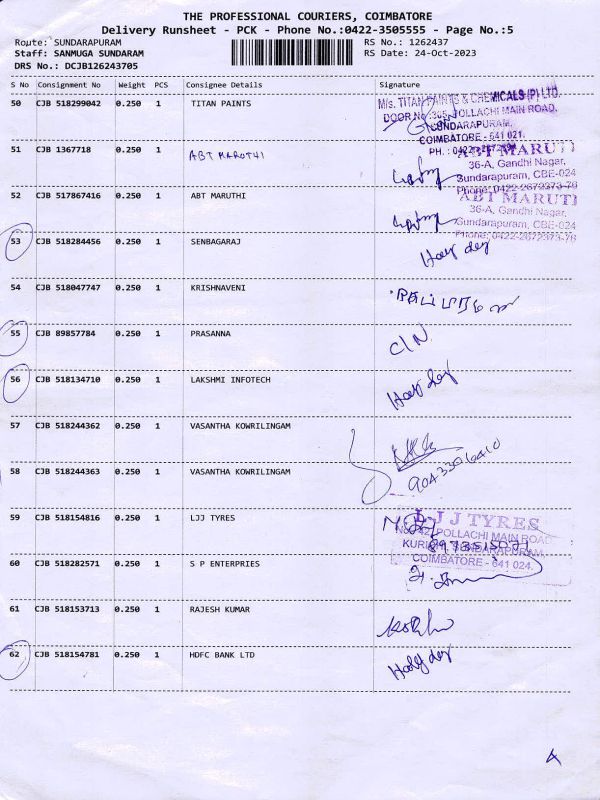 THE PROFESSIONAL COURIERS, COIMBATORE
Delivery Runsheet - PCK - Phone No.:0422-3505555 - Page No.:5
Route: SUNDARAPURAM RS No.: 1262437
Staff: SANMUGA SUNDARAM RS Date: 24-Oct-2023
DRS No.: DCJB126243705
S No Consignment No Weight PCS Consignee Details Signature
50 CJB 518299042 0.250 1 TITAN PAINTS
M/s. TITAN PAINTS & CHEMICALS (P) LTD.
DOOR NO: 305, POLLACHI MAIN ROAD,
SUNDARAPURAM,
COIMBATORE - 641 021.
51 CJB 1367718 0.250 1 ABT MARUTHI
ABT MARUTI
36-A, Gandhi Nagar,
Sundarapuram, CBE-024
Phone: 0422-2672373-76
52 CJB 517867416 0.250 1 ABT MARUTHI
ABT MARUTI
36-A, Gandhi Nagar,
Sundarapuram, CBE-024
Phone: 0422-2672373-76
53 CJB 518284456 0.250 1 SENBAGARAJ Holy dey
54 CJB 518047747 0.250 1 KRISHNAVENI
55 CJB 89857784 0.250 1 PRASANNA C/N
56 CJB 518134710 0.250 1 LAKSHMI INFOTECH Holy dey
57 CJB 518244362 0.250 1 VASANTHA KOWRILINGAM
58 CJB 518244363 0.250 1 VASANTHA KOWRILINGAM
59 CJB 518154816 0.250 1 LJJ TYRES
L J J TYRES
POLLACHI MAIN ROAD
SUNDARAPURAM
COIMBATORE - 641 024.
60 CJB 518282571 0.250 1 S P ENTERPRIES
61 CJB 518153713 0.250 1 RAJESH KUMAR
62 CJB 518154781 0.250 1 HDFC BANK LTD Holy dey